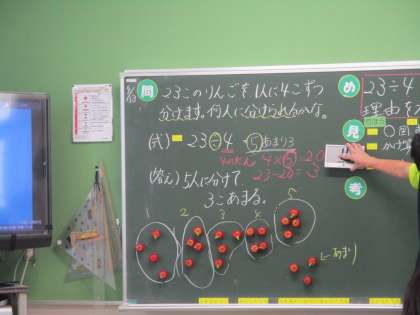 5/13
問
23このりんごを1人に4こずつ
分けます。何人に分けられるかな。
(式) 23÷4 = ⑤あまり3
4×⑤=20
23-20=3
(答え) 5人に分けて
3こあまる。
1 2 3 4 5
あまり
め
23÷4
理由を
見
かけ
考